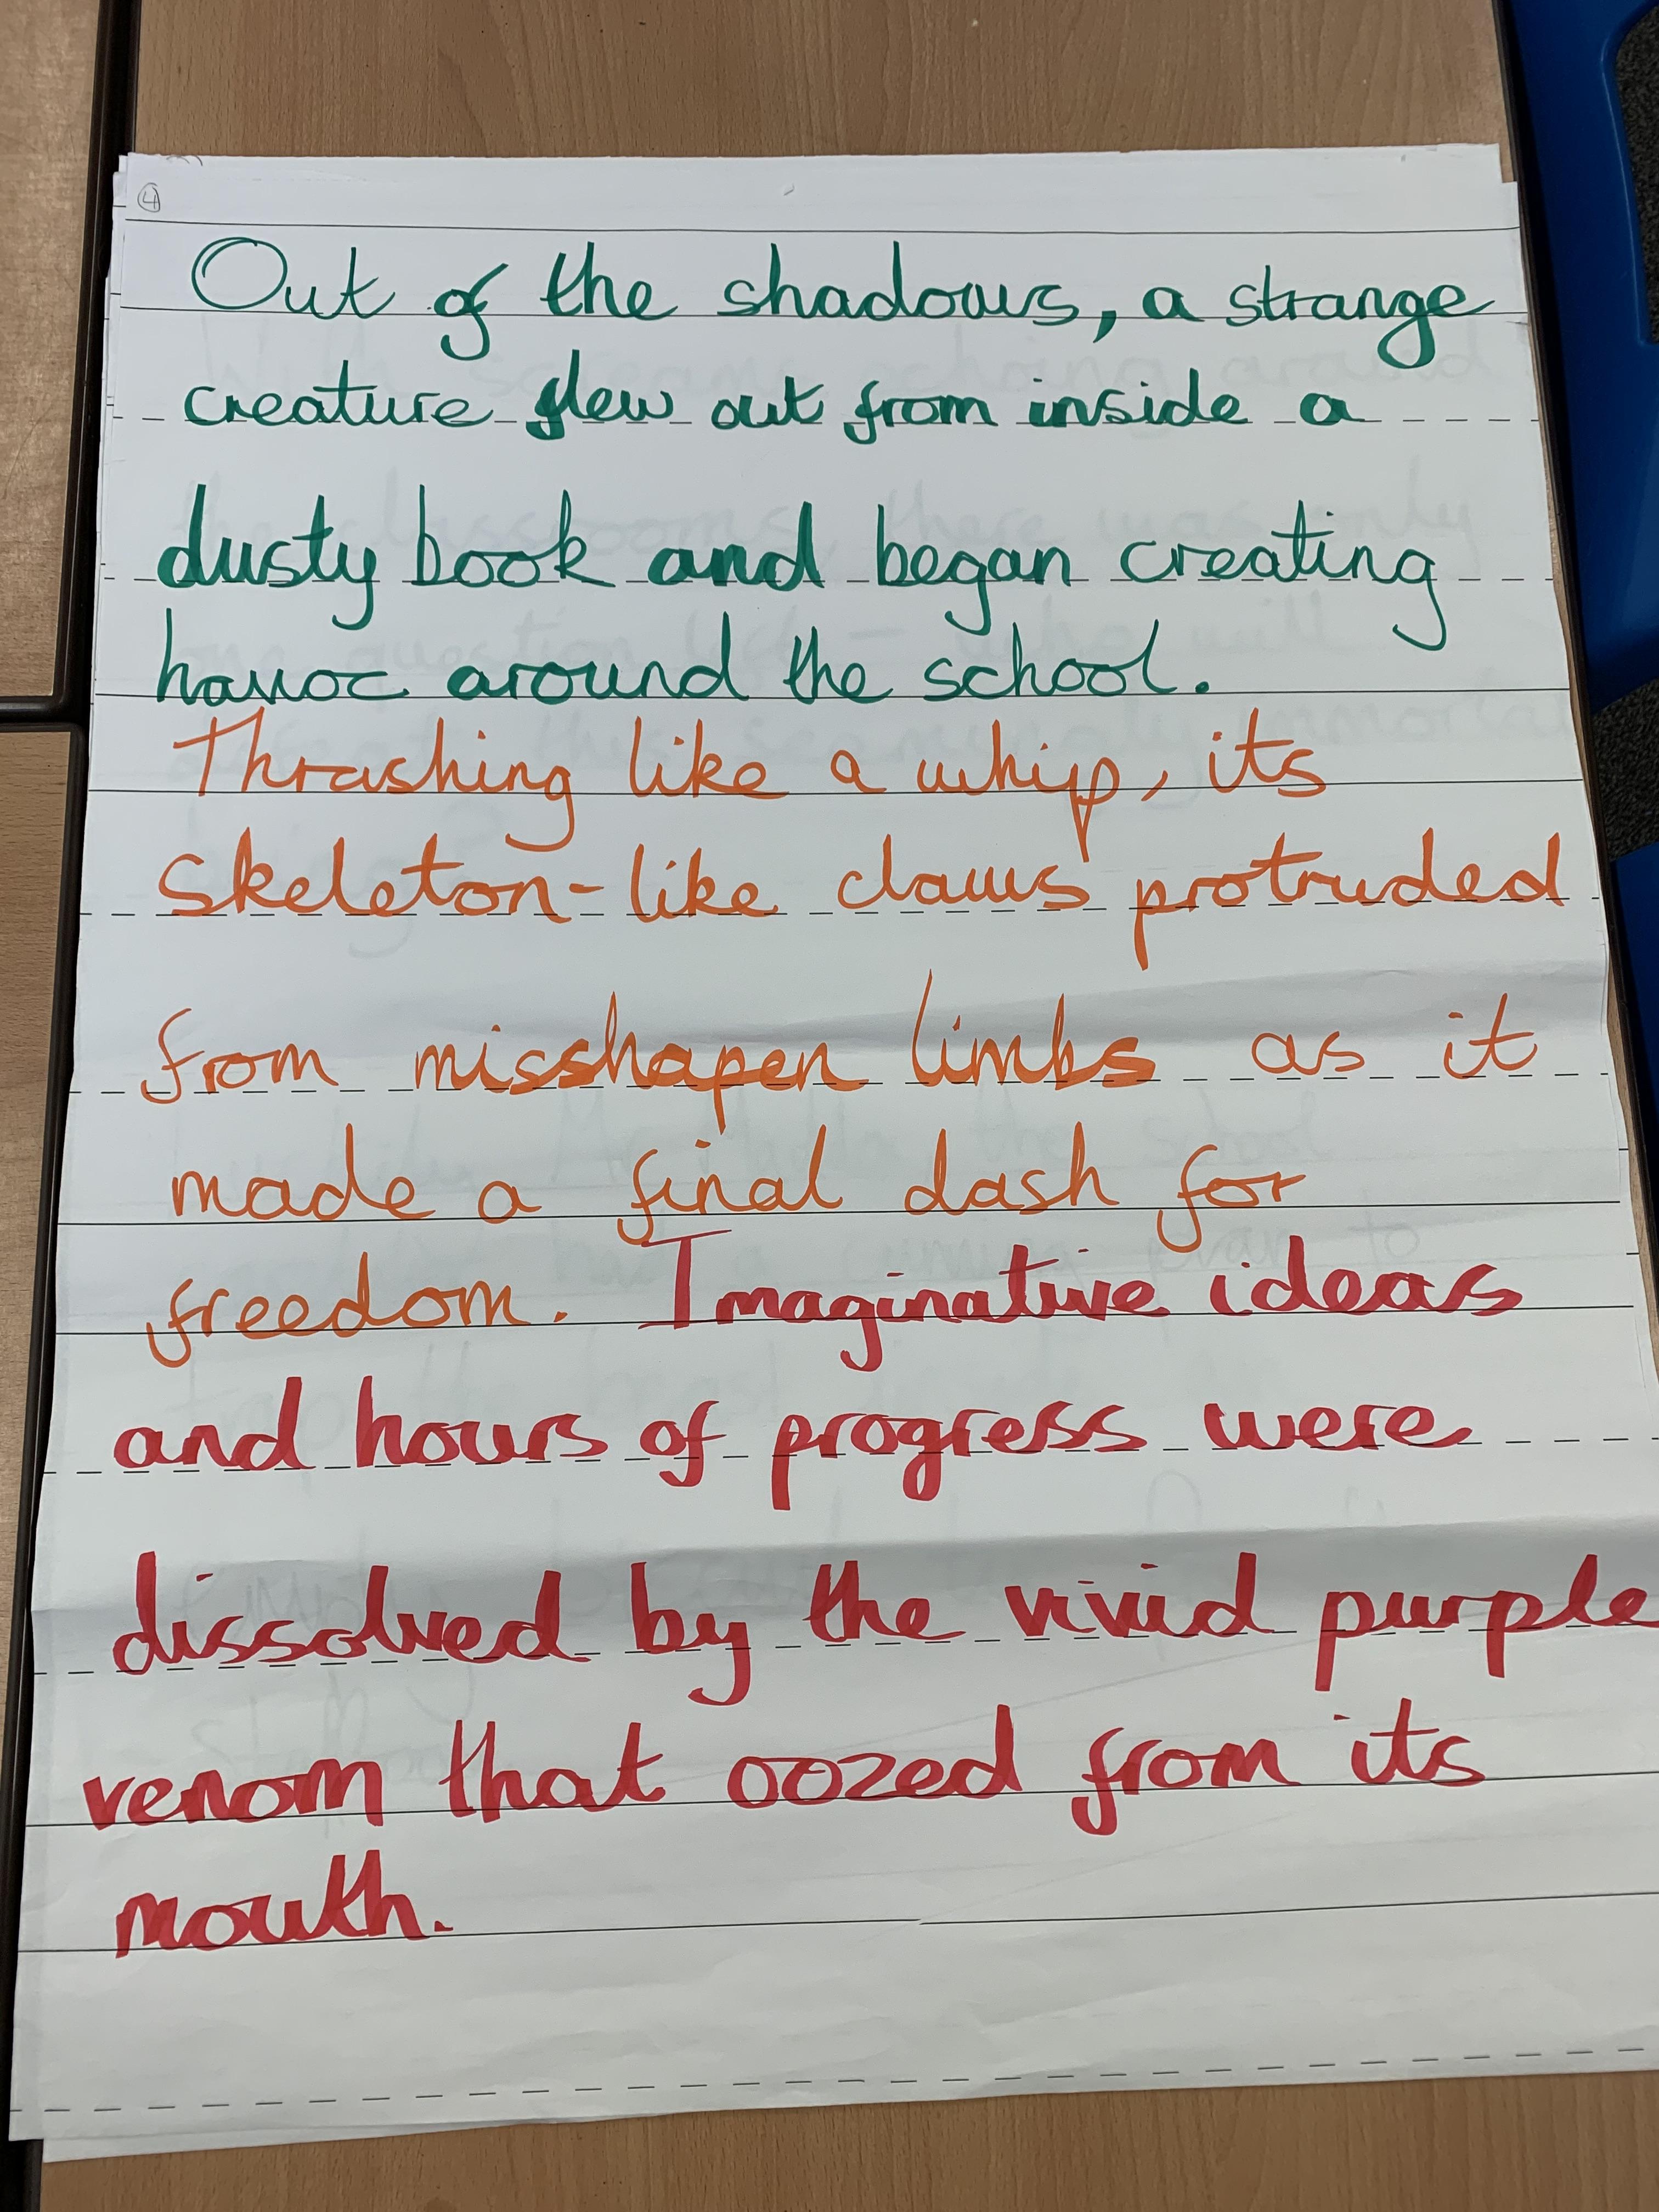 ④
Out of the shadows, a strange
creature flew out from inside a
dusty book and began creating
havoc around the school.
Thrashing like a whip, its
skeleton-like claws protruded
from misshapen limbs as it
made a final dash for
freedom. Imaginative ideas
and hours of progress were
dissolved by the vivid purple
venom that oozed from its
mouth.